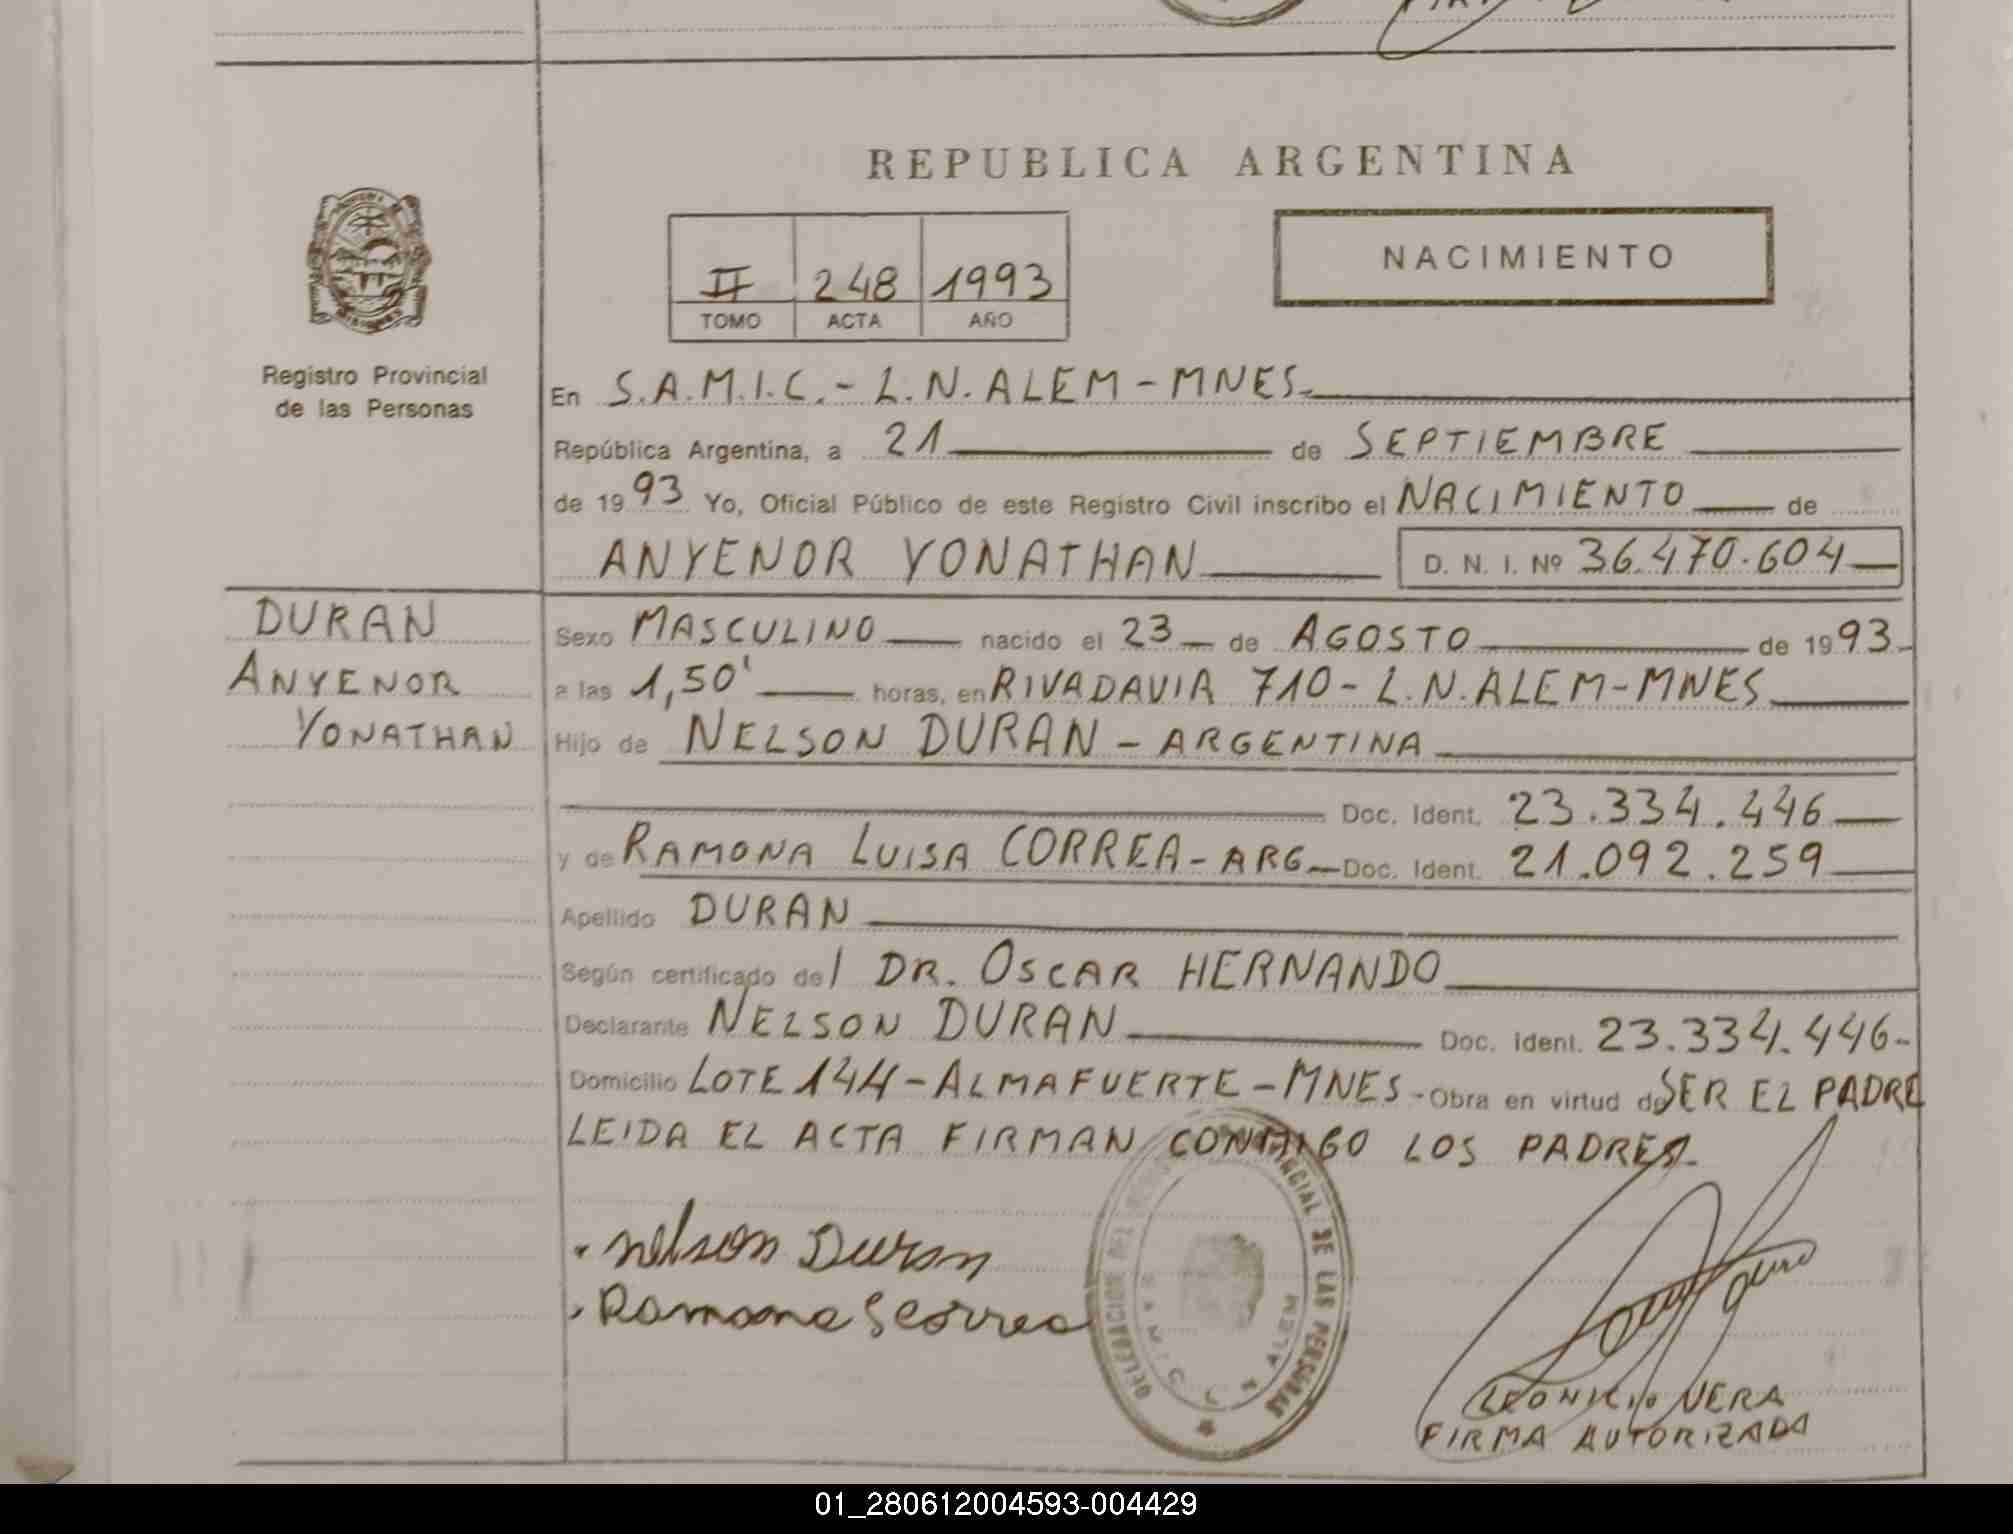 REPUBLICA ARGENTINA
NACIMIENTO
II 248 1993
TOMO ACTA AÑO
Registro Provincial
de las Personas
En S.A.M.I.C. - L.N. ALEM - MNES.
República Argentina, a 21 de SEPTIEMBRE
de 1993 Yo, Oficial Público de este Registro Civil inscribo el NACIMIENTO de
ANYENOR YONATHAN D. N. I. Nº 36.470.604
DURAN
ANYENOR
YONATHAN
Sexo MASCULINO nacido el 23 de AGOSTO de 1993
a las 1,50' horas, en RIVADAVIA 710 - L.N. ALEM - MNES
Hijo de NELSON DURAN - ARGENTINA
Doc. Ident. 23.334.446
y de RAMONA LUISA CORREA - ARG Doc. Ident. 21.092.259
Apellido DURAN
Según certificado del DR. OSCAR HERNANDO
Declarante NELSON DURAN Doc. Ident. 23.334.446-
Domicilio LOTE 144 - ALMAFUERTE - MNES - Obra en virtud de SER EL PADRE
LEIDA EL ACTA FIRMAN CONMIGO LOS PADRES.
Nelson Duran
Ramona Correa
DELEGACION DEL DE LAS PERSONAS
S A M I C L N ALEM
LEONICIO VERA
FIRMA AUTORIZADA
01_280612004593-004429